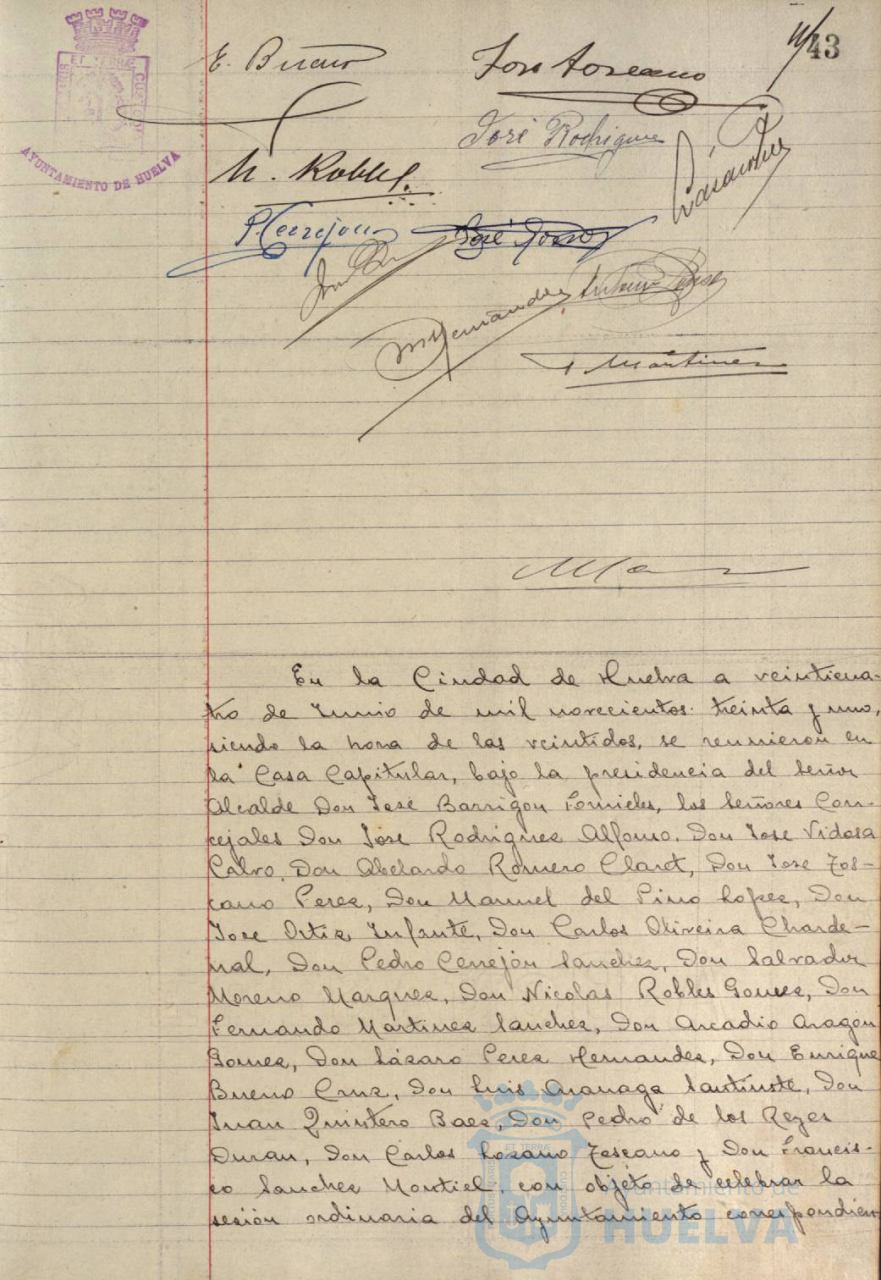 43
PORTUS MARIS ET TERRE CUSTODIA
AYUNTAMIENTO DE HUELVA
E. Bueno
José Toscano
José Rodriguez
N. Robles.
P. Cerrejon
M Hernandez
F Martinez
En la Ciudad de Huelva a veinticua-
tro de Junio de mil novecientos treinta y uno,
siendo la hora de las veintidos, se reunieron en
la Casa Capitular, bajo la presidencia del Señor
Alcalde Don José Barrigon Fornieles, los Señores Con-
cejales Don José Rodriguez Alfonso, Don Jose Vidosa
Calvo, Don Abelardo Romero Claret, Don Jose Tos-
cano Perez, Don Manuel del Pino Lopez, Don
Jose Ortiz Infante, Don Carlos Oliveira Charde-
nal, Don Pedro Cerrejón Sanchez, Don Salvador
Moreno Marquez, Don Nicolas Robles Gomez, Don
Fernando Martinez Sanchez, Don Arcadio Aragón
Gomez, Don Lázaro Perez Hernandez, Don Enrique
Bueno Cruz, Don Luis Don
Juan Quintero Baez, Don Pedro de los Reyes
Duran, Don Carlos Lozano Toscano y Don Francis-
co Sanchez Montiel, con objeto de celebrar la
sesión ordinaria del Ayuntamiento correspondien
Ayuntamiento de
HUELVA